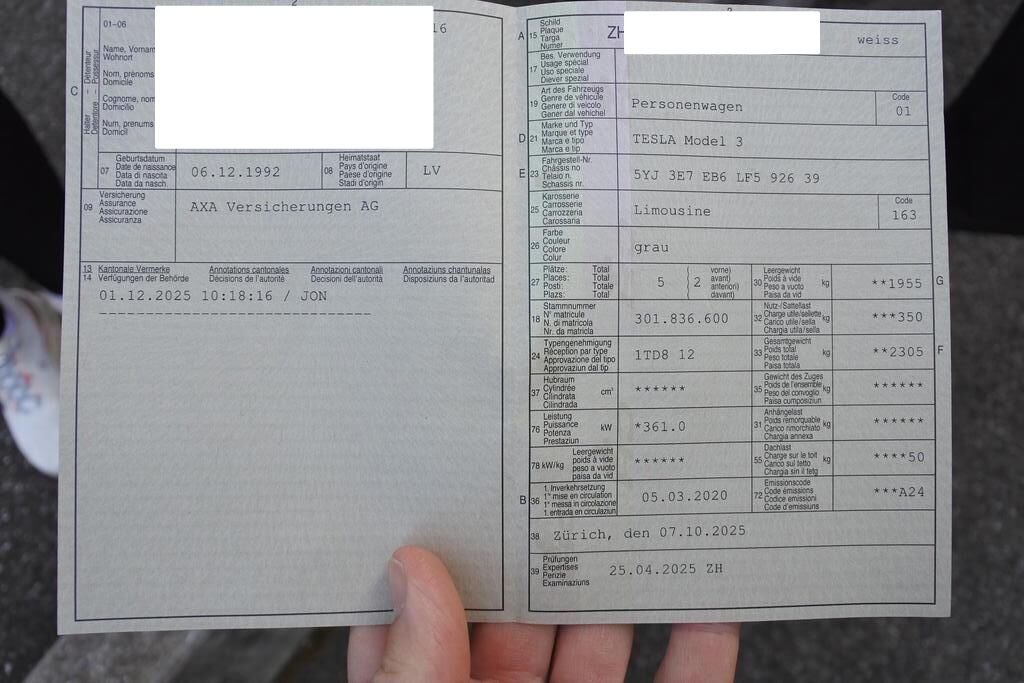 16
C
01-06
Halter – Détenteur
Detentore – Possessur
Name, Vornam
Wohnort
Nom, prénoms
Domicile
Cognome, nom
Domicilio
Num, prenums
Domicil
07
Geburtsdatum
Date de naissance
Data di nascita
Data da nasch.
06.12.1992
08
Heimatstaat
Pays d'origine
Paese d'origine
Stadi d'origin
LV
09
Versicherung
Assurance
Assicurazione
Assicuranza
AXA Versicherungen AG
13 Kantonale Vermerke Annotations cantonales Annotazioni cantonali Annotaziuns chantunalas
14 Verfügungen der Behörde Décisions de l'autorité Decisioni dell'autorità Disposiziuns da l'autoritad
01.12.2025 10:18:16 / JON
A
15
Schild
Plaque
Targa
Numer
ZH
weiss
17
Bes. Verwendung
Usage spécial
Uso speciale
Diever spezial
19
Art des Fahrzeugs
Genre de véhicule
Genere di veicolo
Gener dal vehichel
Personenwagen
Code
01
D
21
Marke und Typ
Marque et type
Marca e tipo
Marca e tip
TESLA Model 3
E
23
Fahrgestell-Nr.
Châssis no
Telaio n.
Schassis nr.
5YJ 3E7 EB6 LF5 926 39
25
Karosserie
Carrosserie
Carrozzeria
Carossaria
Limousine
Code
163
26
Farbe
Couleur
Colore
Colur
grau
27
Plätze: Total
Places: Total
Posti: Totale
Plazs: Total
5
2
vorne)
avant)
anteriori)
davant)
30
Leergewicht
Poids à vide
Peso a vuoto
Paisa da vid
kg
**1955
G
18
Stammnummer
N° matricule
N. di matricola
Nr. da matricla
301.836.600
32
Nutz-/Sattellast
Charge utile/sellette
Carico utile/sella
Chargia utila/sella
kg
***350
24
Typengenehmigung
Réception par type
Approvazione del tipo
Approvaziun dal tip
1TD8 12
33
Gesamtgewicht
Poids total
Peso totale
Paisa totala
kg
**2305
F
37
Hubraum
Cylindrée
Cilindrata
Cilindrada
cm³
******
35
Gewicht des Zuges
Poids de l'ensemble
Peso del convoglio
Paisa cumposiziun
kg
******
76
Leistung
Puissance
Potenza
Prestaziun
kW
*361.0
31
Anhängelast
Poids remorquable
Carico rimorchiato
Chargia annexa
kg
******
78 kW/kg
Leergewicht
poids à vide
peso a vuoto
paisa da vid
******
55
Dachlast
Charge sur le toit
Carico sul tetto
Chargia sin il tetg
kg
****50
B
36
1. Inverkehrsetzung
1re mise en circulation
1a messa in circolazione
1. entrada en circulaziun
05.03.2020
72
Emissionscode
Code émissions
Codice emissioni
Code d'emissiuns
***A24
38
Zürich, den 07.10.2025
39
Prüfungen
Expertises
Perizie
Examinaziuns
25.04.2025 ZH